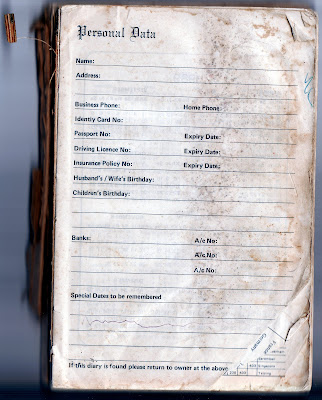 Personal Data
Name:
Address:
Business Phone: Home Phone:
Identiy Card No:
Passport No: Expiry Date:
Driving Licence No: Expiry Date:
Insurance Policy No: Expiry Date:
Husband's / Wife's Birthday:
Children's Birthday:
Banks: A/c No:
A/c No:
A/c No:
Special Dates to be remembered
If this diary is found please return to owner at the above